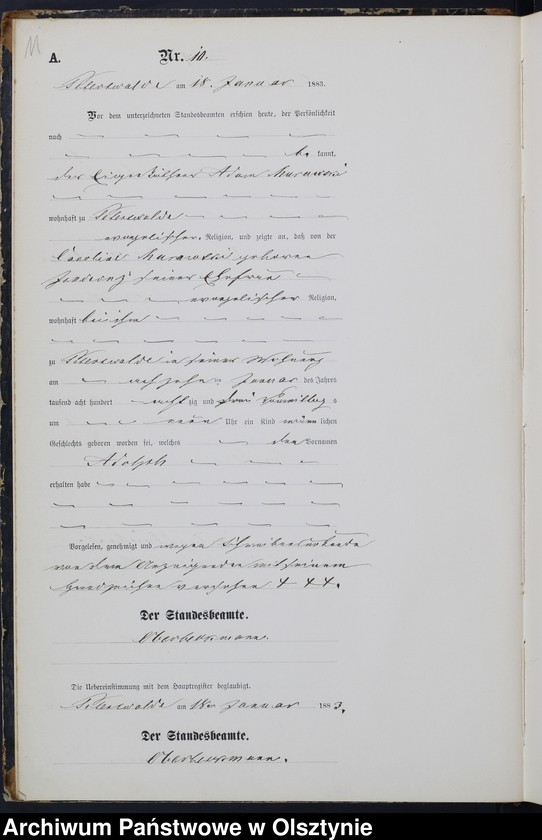 11
A.
Nr. 10.
am 18. Januar 1883.
Vor dem unterzeichneten Standesbeamten erschien heute, der Persönlichkeit
nach
kannt,
der Eigenkäthner Adam Murawski
wohnhaft zu
evangelischer Religion, und zeigte an, daß von der
Caroline Murawski geborene
seiner Ehefrau
evangelischer Religion,
wohnhaft bei ihm
zu in seiner Wohnung
am achtzehn ten Januar des Jahres
tausend acht hundert achtzig und drei Vormittags
um neun Uhr ein Kind männlichen
Geschlechts geboren worden sei, welches den Vornamen
Adolph
erhalten habe
Vorgelesen, genehmigt und wegen Schreibensunkunde
von dem Anzeigenden mit seinem
Handzeichen versehen + + +.
Der Standesbeamte.
Die Uebereinstimmung mit dem Hauptregister beglaubigt.
am 18. Januar 1883.
Der Standesbeamte.
Archiwum Państwowe w Olsztynie